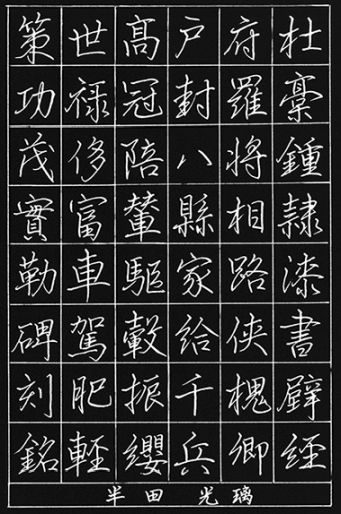 杜稾鍾隷漆書壁經
府羅將相路俠槐卿
戸封八縣家給千兵
髙冠陪輦驅轂振纓
世禄侈富車駕肥輕
策功茂實勒碑刻銘
半田光璃